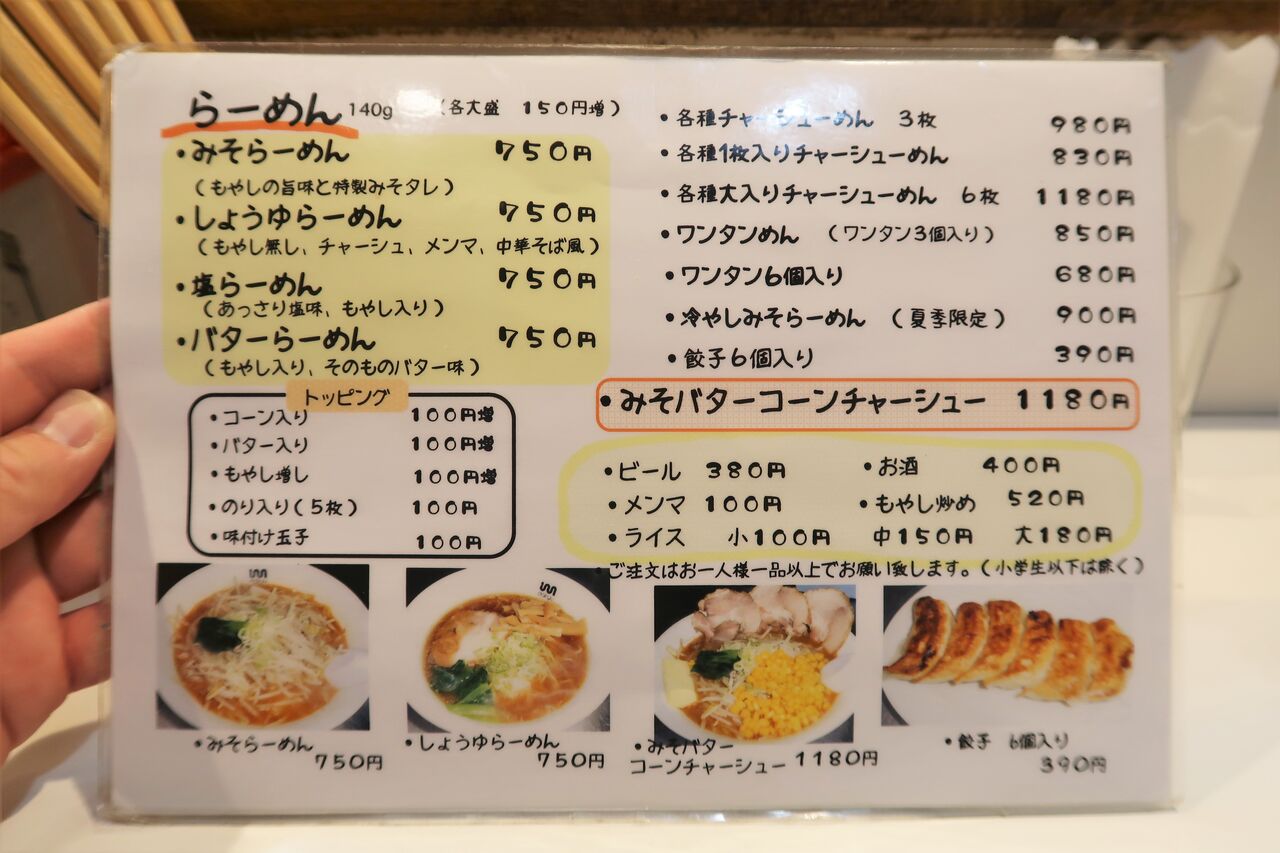 らーめん 140g (各大盛 150円増)
・みそらーめん 750円
(もやしの旨味と特製みそタレ)
・しょうゆらーめん 750円
(もやし無し、チャーシュ、メンマ、中華そば風)
・塩らーめん 750円
(あっさり塩味、もやし入り)
・バターらーめん 750円
(もやし入り、そのものバター味)
トッピング
・コーン入り 100円増
・バター入り 100円増
・もやし増し 100円増
・のり入り(5枚) 100円
・味付け玉子 100円
・各種チャーシューめん 3枚 980円
・各種1枚入りチャーシューめん 830円
・各種大入りチャーシューめん 6枚 1180円
・ワンタンめん (ワンタン3個入り) 850円
・ワンタン6個入り 680円
・冷やしみそらーめん (夏季限定) 900円
・餃子6個入り 390円
・みそバターコーンチャーシュー 1180円
・ビール 380円 ・お酒 400円
・メンマ 100円 ・もやし炒め 520円
・ライス 小100円 中150円 大180円
・ご注文はお一人様一品以上でお願い致します。(小学生以下は除く)
・みそらーめん
750円
・しょうゆらーめん
750円
・みそバター
コーンチャーシュー 1180円
・餃子 6個入り
390円